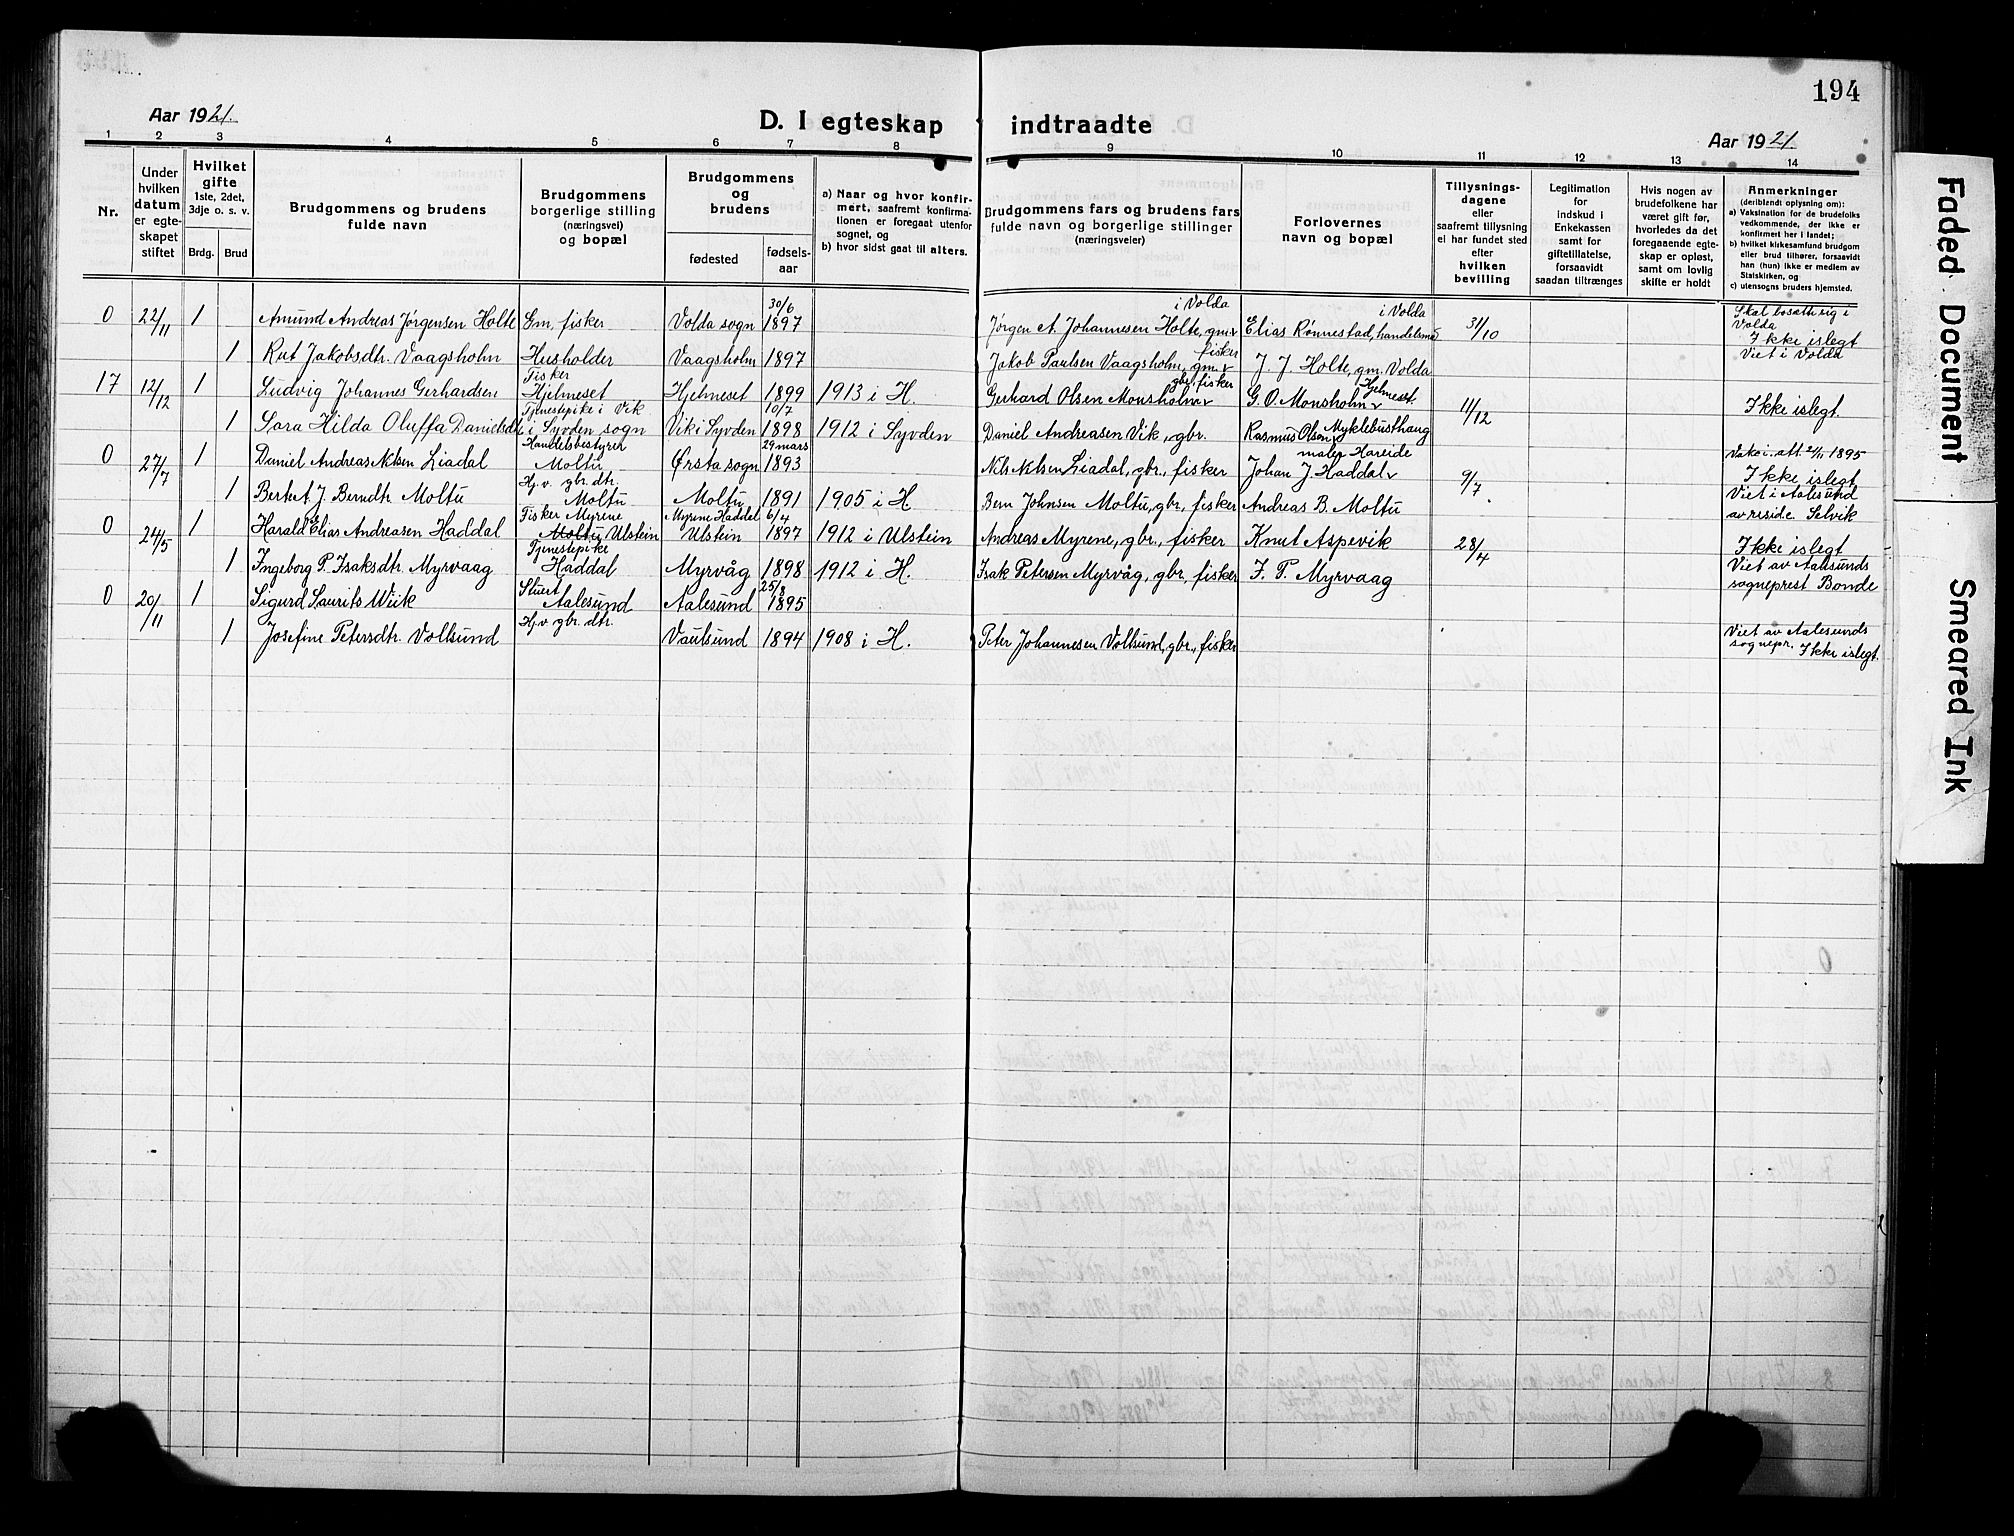 194
Aar 1921.
D. I egteskap indtraadte
Aar 1921.
1 2 3 4 5 6 7 8 9 10 11 12 13 14
Nr.
Under hvilken datum er egteskapet stiftet
Hvilket gifte 1ste, 2det, 3dje o. s. v.
Brdg. Brud
Brudgommens og brudens fulde navn
Brudgommens borgerlige stilling (næringsvei) og bopæl
Brudgommens og brudens
fødested
fødselsaar
a) Naar og hvor konfirmert, saafremt konfirmationen er foregaat utenfor sognet, og
b) hvor sidst gaat til alters.
Brudgommens fars og brudens fars fulde navn og borgerlige stillinger (næringsveier)
Forlovernes navn og bopæl
Tillysningsdagene eller saafremt tillysning ei har fundet sted efter hvilken bevilling
Legitimation for indskud i Enkekassen samt for giftetillatelse, forsaavidt saadan tiltrænges
Hvis nogen av brudefolkene har været gift før, hvorledes da det foregaaende egteskap er opløst, samt om lovlig skifte er holdt
Anmerkninger (deriblandt oplysning om):
a) Vaksination for de brudefolks vedkommende, der ikke er konfirmert her i landet;
b) hvilket kirkesamfund brudgom eller brud tilhører, forsaavidt han (hun) ikke er medlem av Statskirken, og
c) utensogns bruders hjemsted.
0 22/11 1 Amund Andreas Jørgensen Holte Gm, fisker Volda sogn 30/6 1897 Jørgen A. Johannesen Holte, gm. i Volda Elias Rønnestad, handelsm. i Volda 31/10 Skal bosætte sig i Volda Ikke islegt
1 Rut Jakobsdtr. Vaagsholm Husholder Vaagsholm 1897 Jakob Paulsen Vaagsholm, gm. fisker J. J. Holte, gm. Volda Viet i Volda
17 12/12 1 Ludvig Johannes Gerhardsen Fisker Hjelmeset Hjelmeset 1899 1913 i H. Gerhard Olsen Monsholm gbr., fisker G. O. Monsholm Hjelmeset 11/12 Ikke islegt.
1 Sara Hilda Oluffa Danielsdtr Tjenestepike i Vik i Syvden sogn Vik i Syvden 10/7 1898 1912 i Syvden Daniel Andreasen Vik, gbr. Rasmus Olsen Myklebusthaug
0 27/7 1 Daniel Andreas Nilsen Liadal Handelsbestyrer Moltu Ørsta sogn 29 mars 1893 Nils Nilsen Liadal, gbr., fisker Johan J. Haddal maler Hareide 9/7 Vakc. att. 2/11 1895 Ikke islegt
1 Berte A. J. Berndtr Moltu Hj. v. gbr. dtr. Moltu Moltu 1891 1905 i H Bern Johnsen Moltu, gbr, fisker Andreas B. Moltu Viet i Aalesund av reside. Selvik
0 24/5 1 Harald Elias Andreasen Haddal Fisker Myrene Moltu Ulstein Myrene Haddal Ulstein 6/4 1897 1912 i Ulstein Andreas Myrene, gbr., fisker Knut Aspevik 28/4 Ikke islegt
1 Ingeborg P. Isaksdtr. Myrvaag Tjenestepike Haddal Myrvåg 1898 1912 i H. Isak Petersen Myrvåg, gbr, fisker I. P. Myrvaag Viet av Aalesunds sogneprest Bonde
0 20/11 1 Sigurd Laurits Wiik Stuert Aalesund Aalesund 25/8 1895
1 Josefine Petersdtr. Voltsund Hj. v. gbr. dtr. Vautsund 1894 1908 i H. Peter Johannesen Voltsund, gbr., fisker Viet av Aalesunds sognepr. Ikke islegt.
Faded Document
Smeared Ink